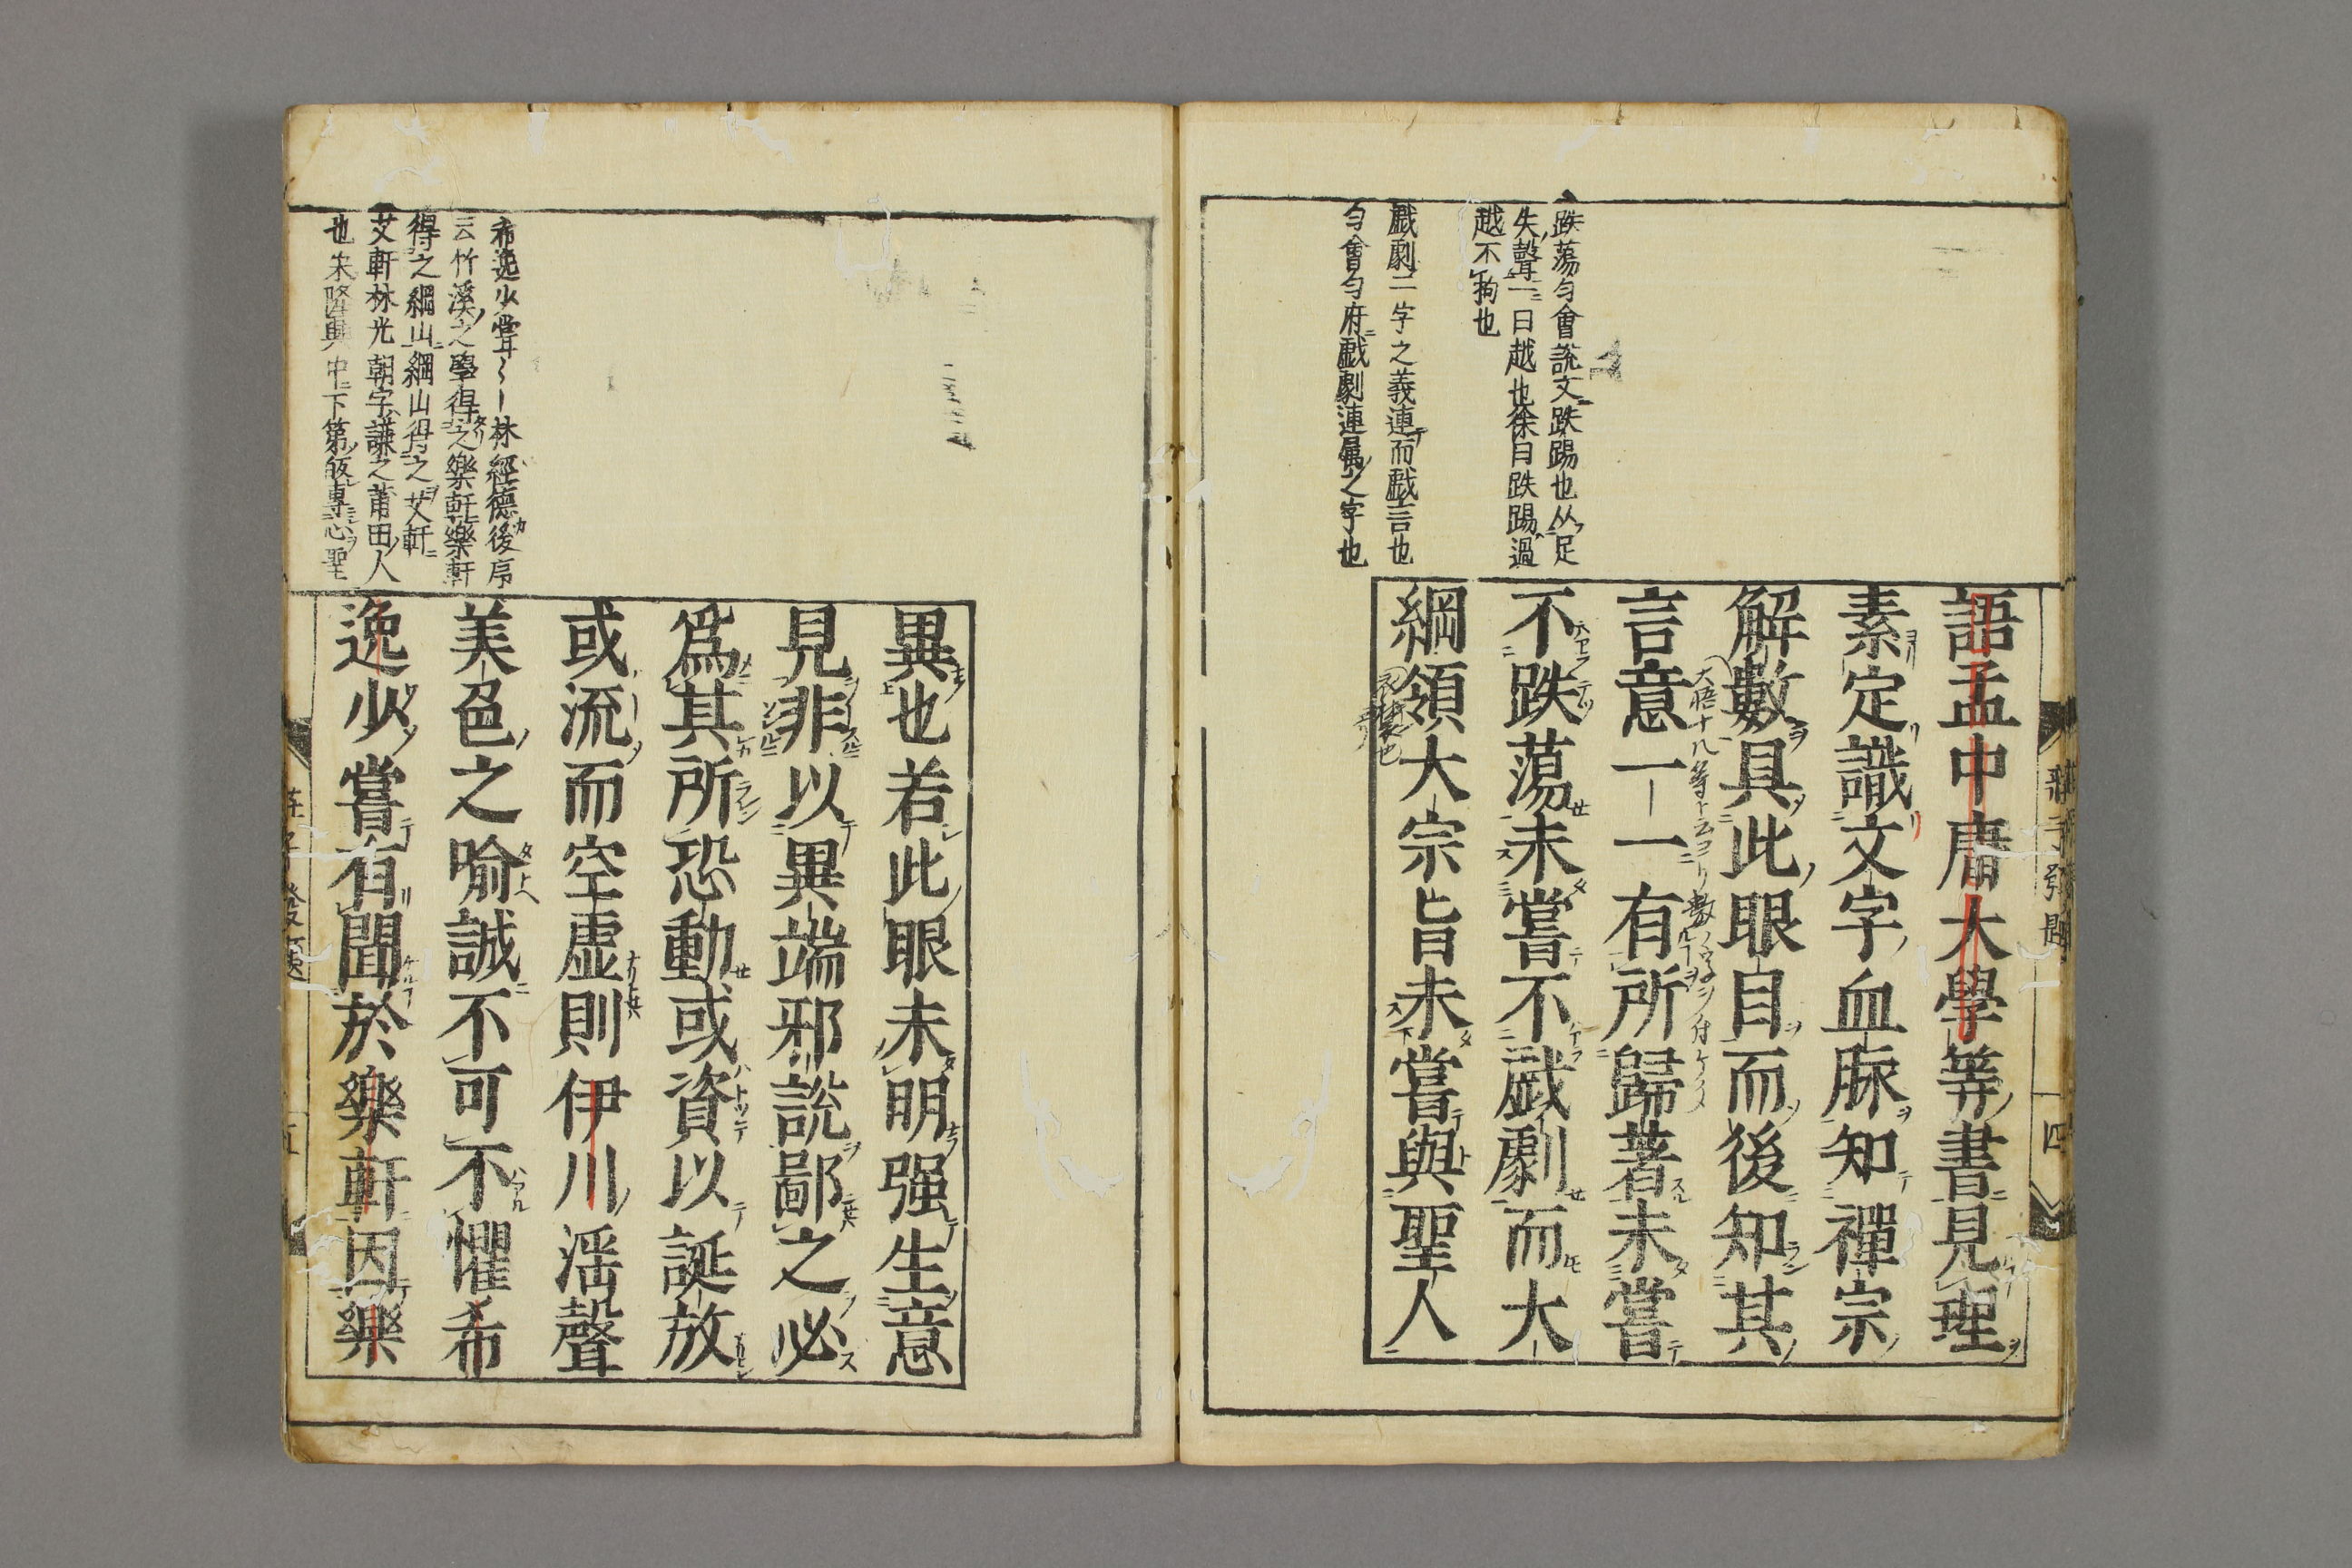 跌蕩勻會說文跌踢也从足
失聲一曰越也徐曰跌踢過
越不拘也
戯劇二字之義連而戯言也
勻會勻府戯劇連属之字也
語孟中庸大學等書見理
素定識文字血脉知禪宗
解數具此眼目而後知其
言意一一有所歸著未嘗
不跌蕩未嘗不戯劇而大
綱領大宗旨未嘗與聖人
莊子發題
四
希逸少嘗林經德後序
云竹溪之學得之樂軒樂軒
得之綱山綱山得之艾軒
艾軒林光朝字謙之莆田人
也朱隆興中下第皈專心聖
異也若此眼未明强生意
見非以異端邪說鄙之必
爲其所恐動或資以誕放
或流而空虛則伊川淫聲
美色之喻誠不可不懼希
逸少嘗有聞於樂軒因樂